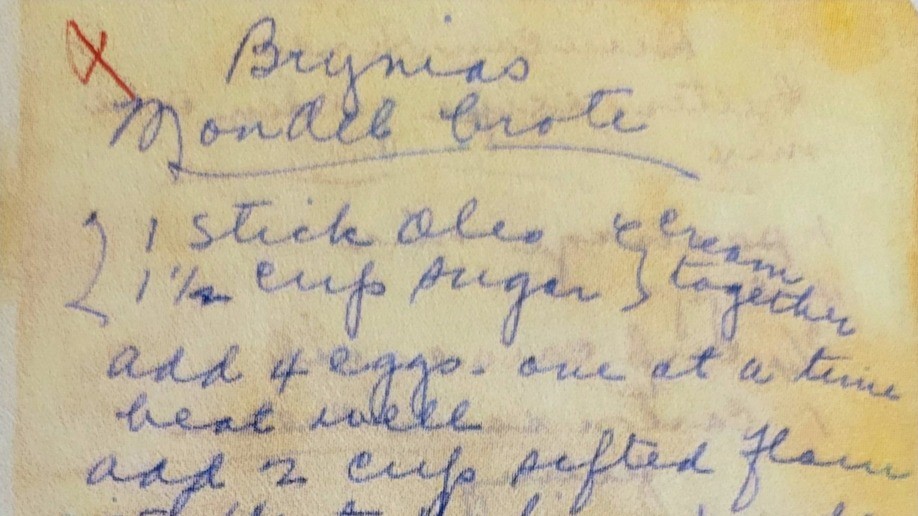 X
Brynias
Mondel brote
1 stick Oleo & cream
1 1/2 cup sugar } together
add 4 eggs - one at a time
beat well
add 2 cup sifted flour